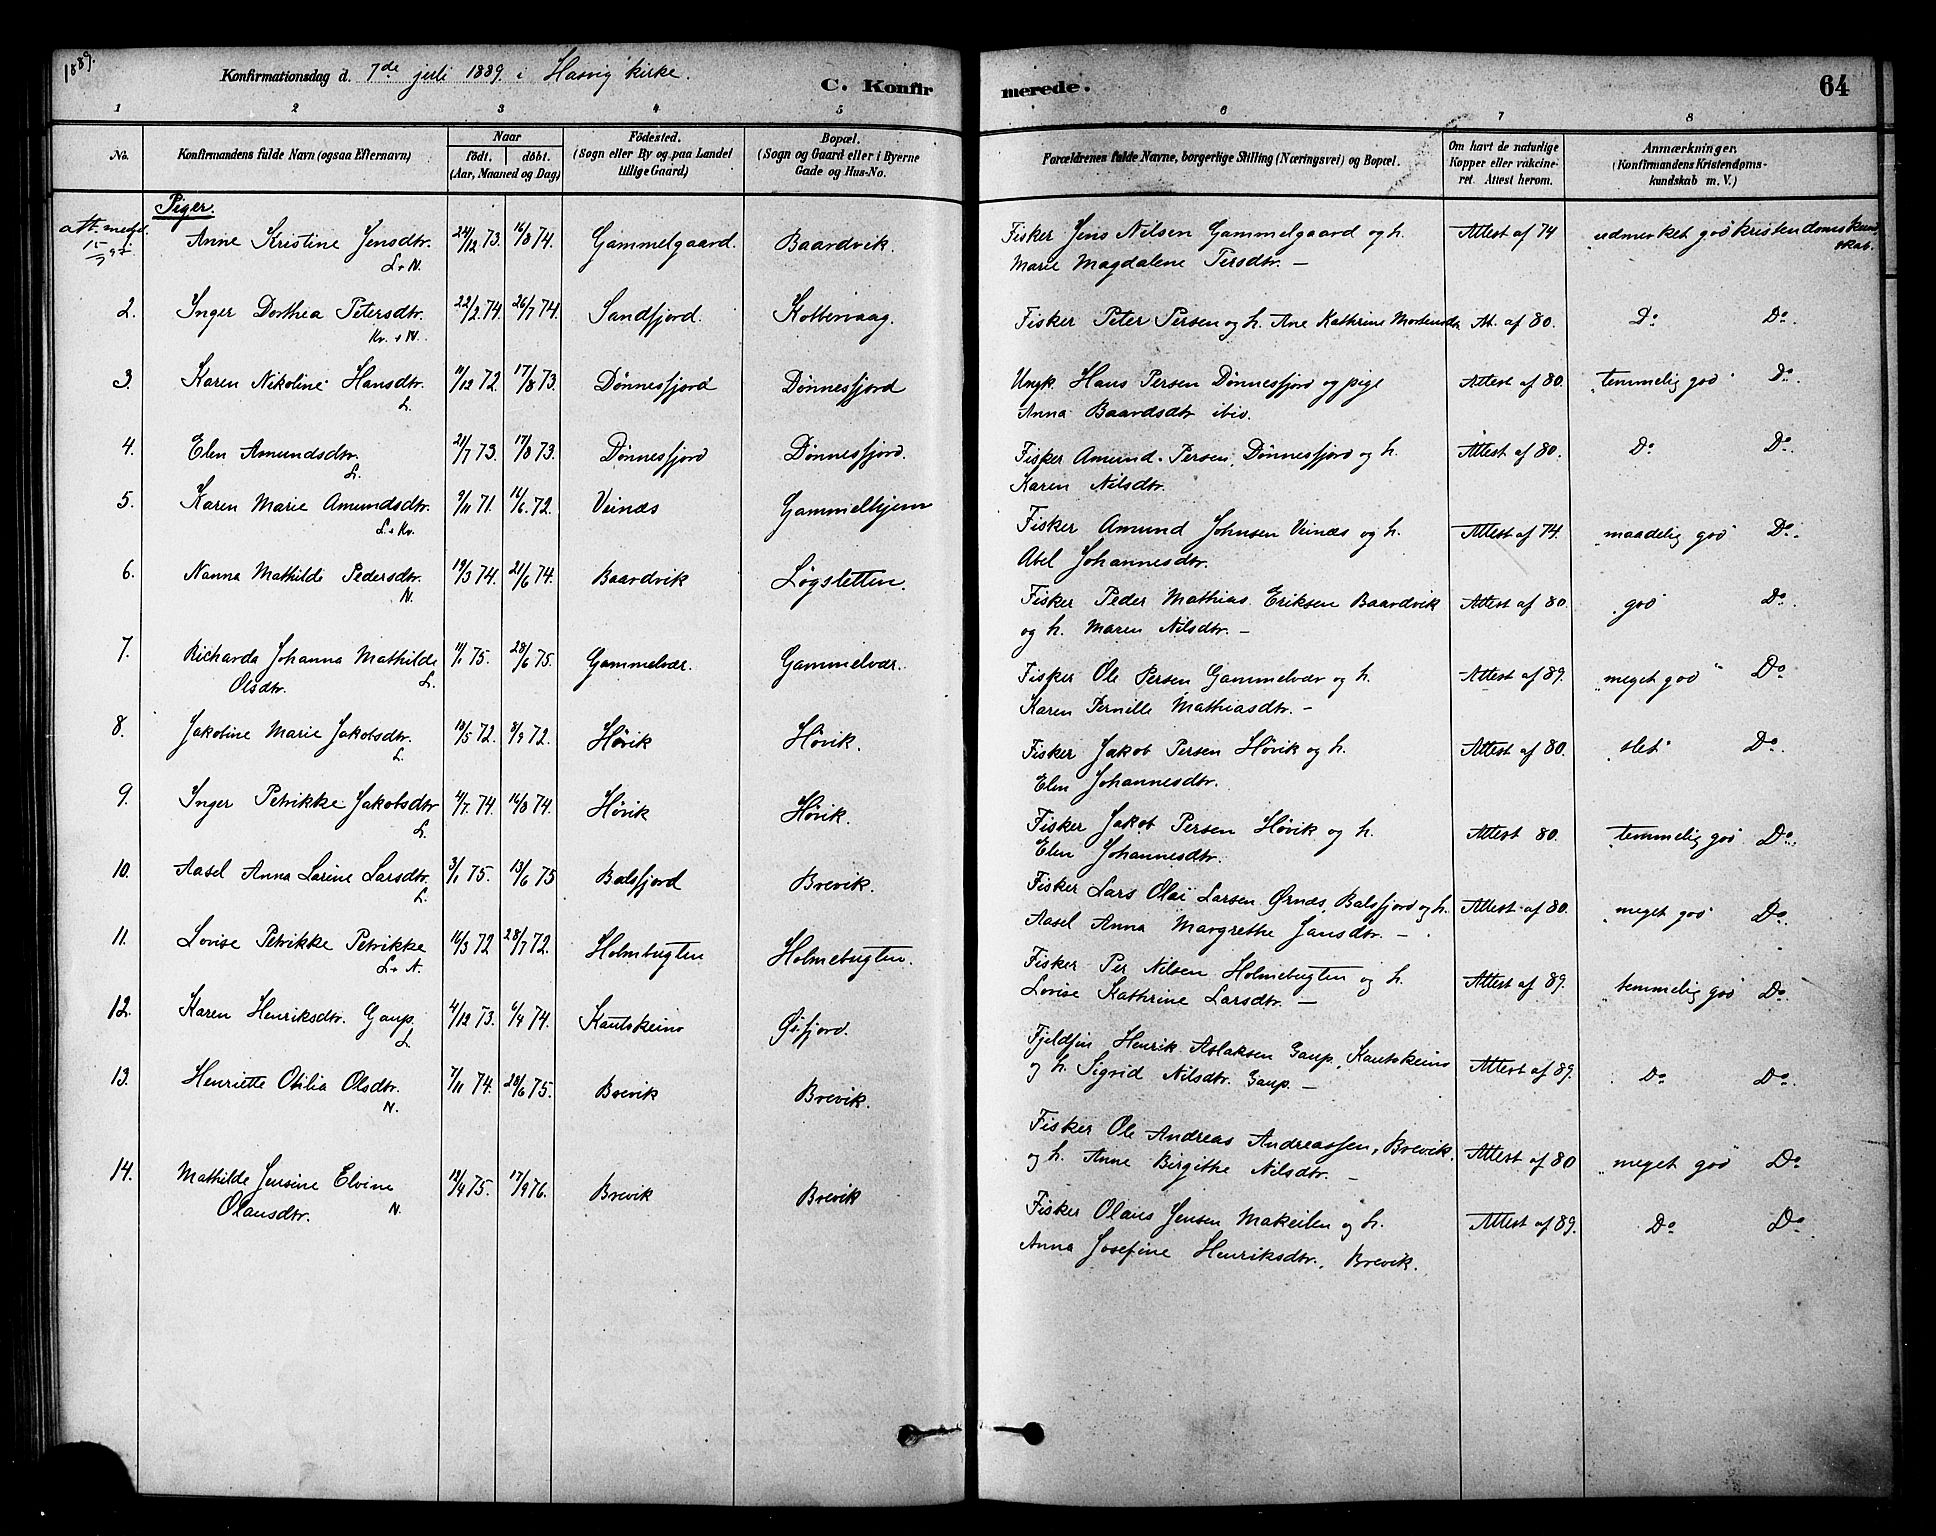 1889.
Konfirmationsdag d. 7de juli 1889 i Hasvig kirke.
C. Konfirmerede.
64
1 2 3 4 5 6 7 8
No.
Konfirmandens fulde Navn (ogsaa Efternavn)
Naar
födt. döbt.
(Aar, Maaned og Dag)
Födested.
(Sogn eller By og paa Landet
tillige Gaard)
Bopæl.
(Sogn og Gaard eller i Byerne
Gade og Hus-No.
Forældrenes fulde Navne, borgerlige Stilling (Næringsvei) og Bopæl.
Om havt de naturlige
Kopper eller vakcine-
ret. Attest herom.
Anmærkninger.
(Konfirmandens Kristendoms-
kundskab m. V.)
Piger.
att. medd. Anne Kristine Jensdtr. 24/12 73. 16/8 74. Gammelgaard. Baardvik. Fisker Jens Nilsen Gammelgaard og h. Attest af 74 udmerket god kristendomskund-
L + N. Marie Magdalene Persdtr. — skab.
2. Inger Dorthea Petersdtr. 22/2 74. 26/7 74. Sandfjord. Kobbervaag. Fisker Peter Persen og h. Ane Kathrine Mortensdtr At. af 80. Do Do.
Kv. + N.
3. Karen Nikoline Hansdtr. 11/12 72 17/8 73. Dønnesfjord Dønnesfjord Ungk. Hans Persen Dønnesfjord og pige Attest af 80. temmelig god Do.
L. Anna Baardsdtr ibid.
4. Elen Amundsdtr. 21/7 73. 17/8 73. Dønnesfjord Dønnesfjord. Fisker Amund Persen, Dønnesfjord og h. Attest af 80. Do Do.
L. Karen Nilsdtr.
5. Karen Marie Amundsdtr. 9/11 71. 16/6 72. Veinæs Gammelhjem Fisker Amund Johnsen Veinæs og h. Attest af 74. maadelig god Do.
L + Kv. Abel Johannesdtr.
6. Nanna Mathilde Pedersdtr. 19/3 74. 21/6 74. Baardvik Løgsletten. Fisker Peder Mathias Eriksen Baardvik Attest af 80. god Do.
N. og h. Maren Nilsdtr. —
7. Richarda Johanna Mathilde 11/1 75. 28/6 75. Gammelvær. Gammelvær. Fisker Ole Persen Gammelvær og h. Attest af 89. meget god Do
Olsdtr. L. Karen Pernille Mathiasdtr. —
8. Jakobine Marie Jakobsdtr. 19/5 72. 8/9 72. Høvik Høvik. Fisker Jakob Persen Høvik og h. Attest af 80. slet Do.
L. Elen Johannesdtr.
9. Inger Petrikke Jakobsdtr 4/7 74. 16/8 74. Høvik Høvik. Fisker Jakob Persen Høvik og h. Attest 80. temmelig god Do.
L. Elen Johannesdtr.
10. Aasel Anna Larine Larsdtr. 3/1 75. 13/6 75 Balsfjord Brevik. Fisker Lars Olai Larsen Ørnæs, Balsfjord og h. Attest af 80. meget god Do.
L. Aasel Anna Margrethe Jansdtr. —
11. Lovise Petrikke Petrikke 16/3 72 28/7 72. Holmbugten Holmebugten. Fisker Per Nilsen Holmebugten og h. Attest af 89. temmelig god Do
L + N. Lovise Kathrine Larsdtr. —
12. Karen Henriksdtr. Gaup. 4/12 73. 6/4 74. Kautokeino Øxfjord. Fjeldfin Henrik Aslaksen Gaup, Kautokeino Attest af 89. Do Do.
L. og h. Sigrid Nilsdtr. Gaup. —
13. Henriette Otilia Olsdtr. 7/11 74. 20/6 75. Brevik Brevik. Fisker Ole Andreas Andreassen, Brevik Attest af 80 meget god Do
N. og h. Anne Birgithe Nilsdtr. —
14. Mathilde Jensine Elvine 19/4 75. 17/9 76. Brevik Brevik Fisker Olaus Jensen Makeilen og h. Attest af 89. Do Do
Olausdtr. N. Anna Josefine Henriksdtr., Brevik.